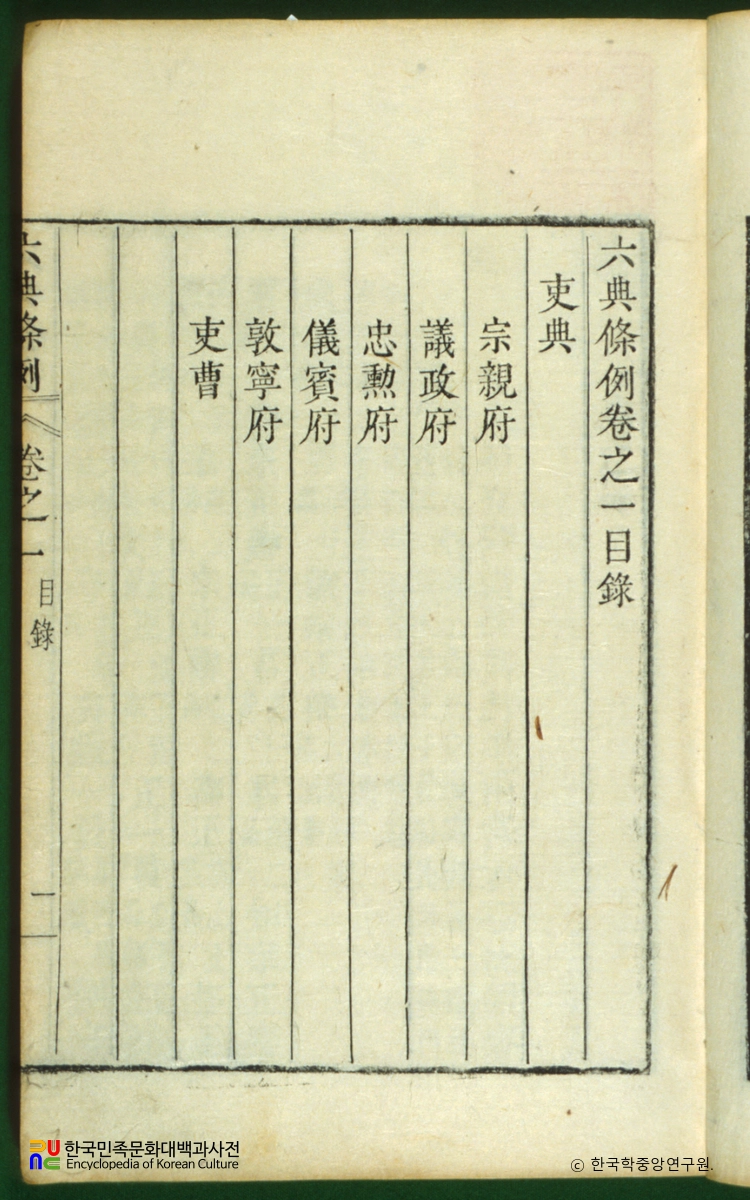 六典條例卷之一目錄
吏典
宗親府
議政府
忠勳府
儀賓府
敦寧府
吏曹
六典條例 卷之一 目錄 一
한국민족문화대백과사전
Encyclopedia of Korean Culture
© 한국학중앙연구원.